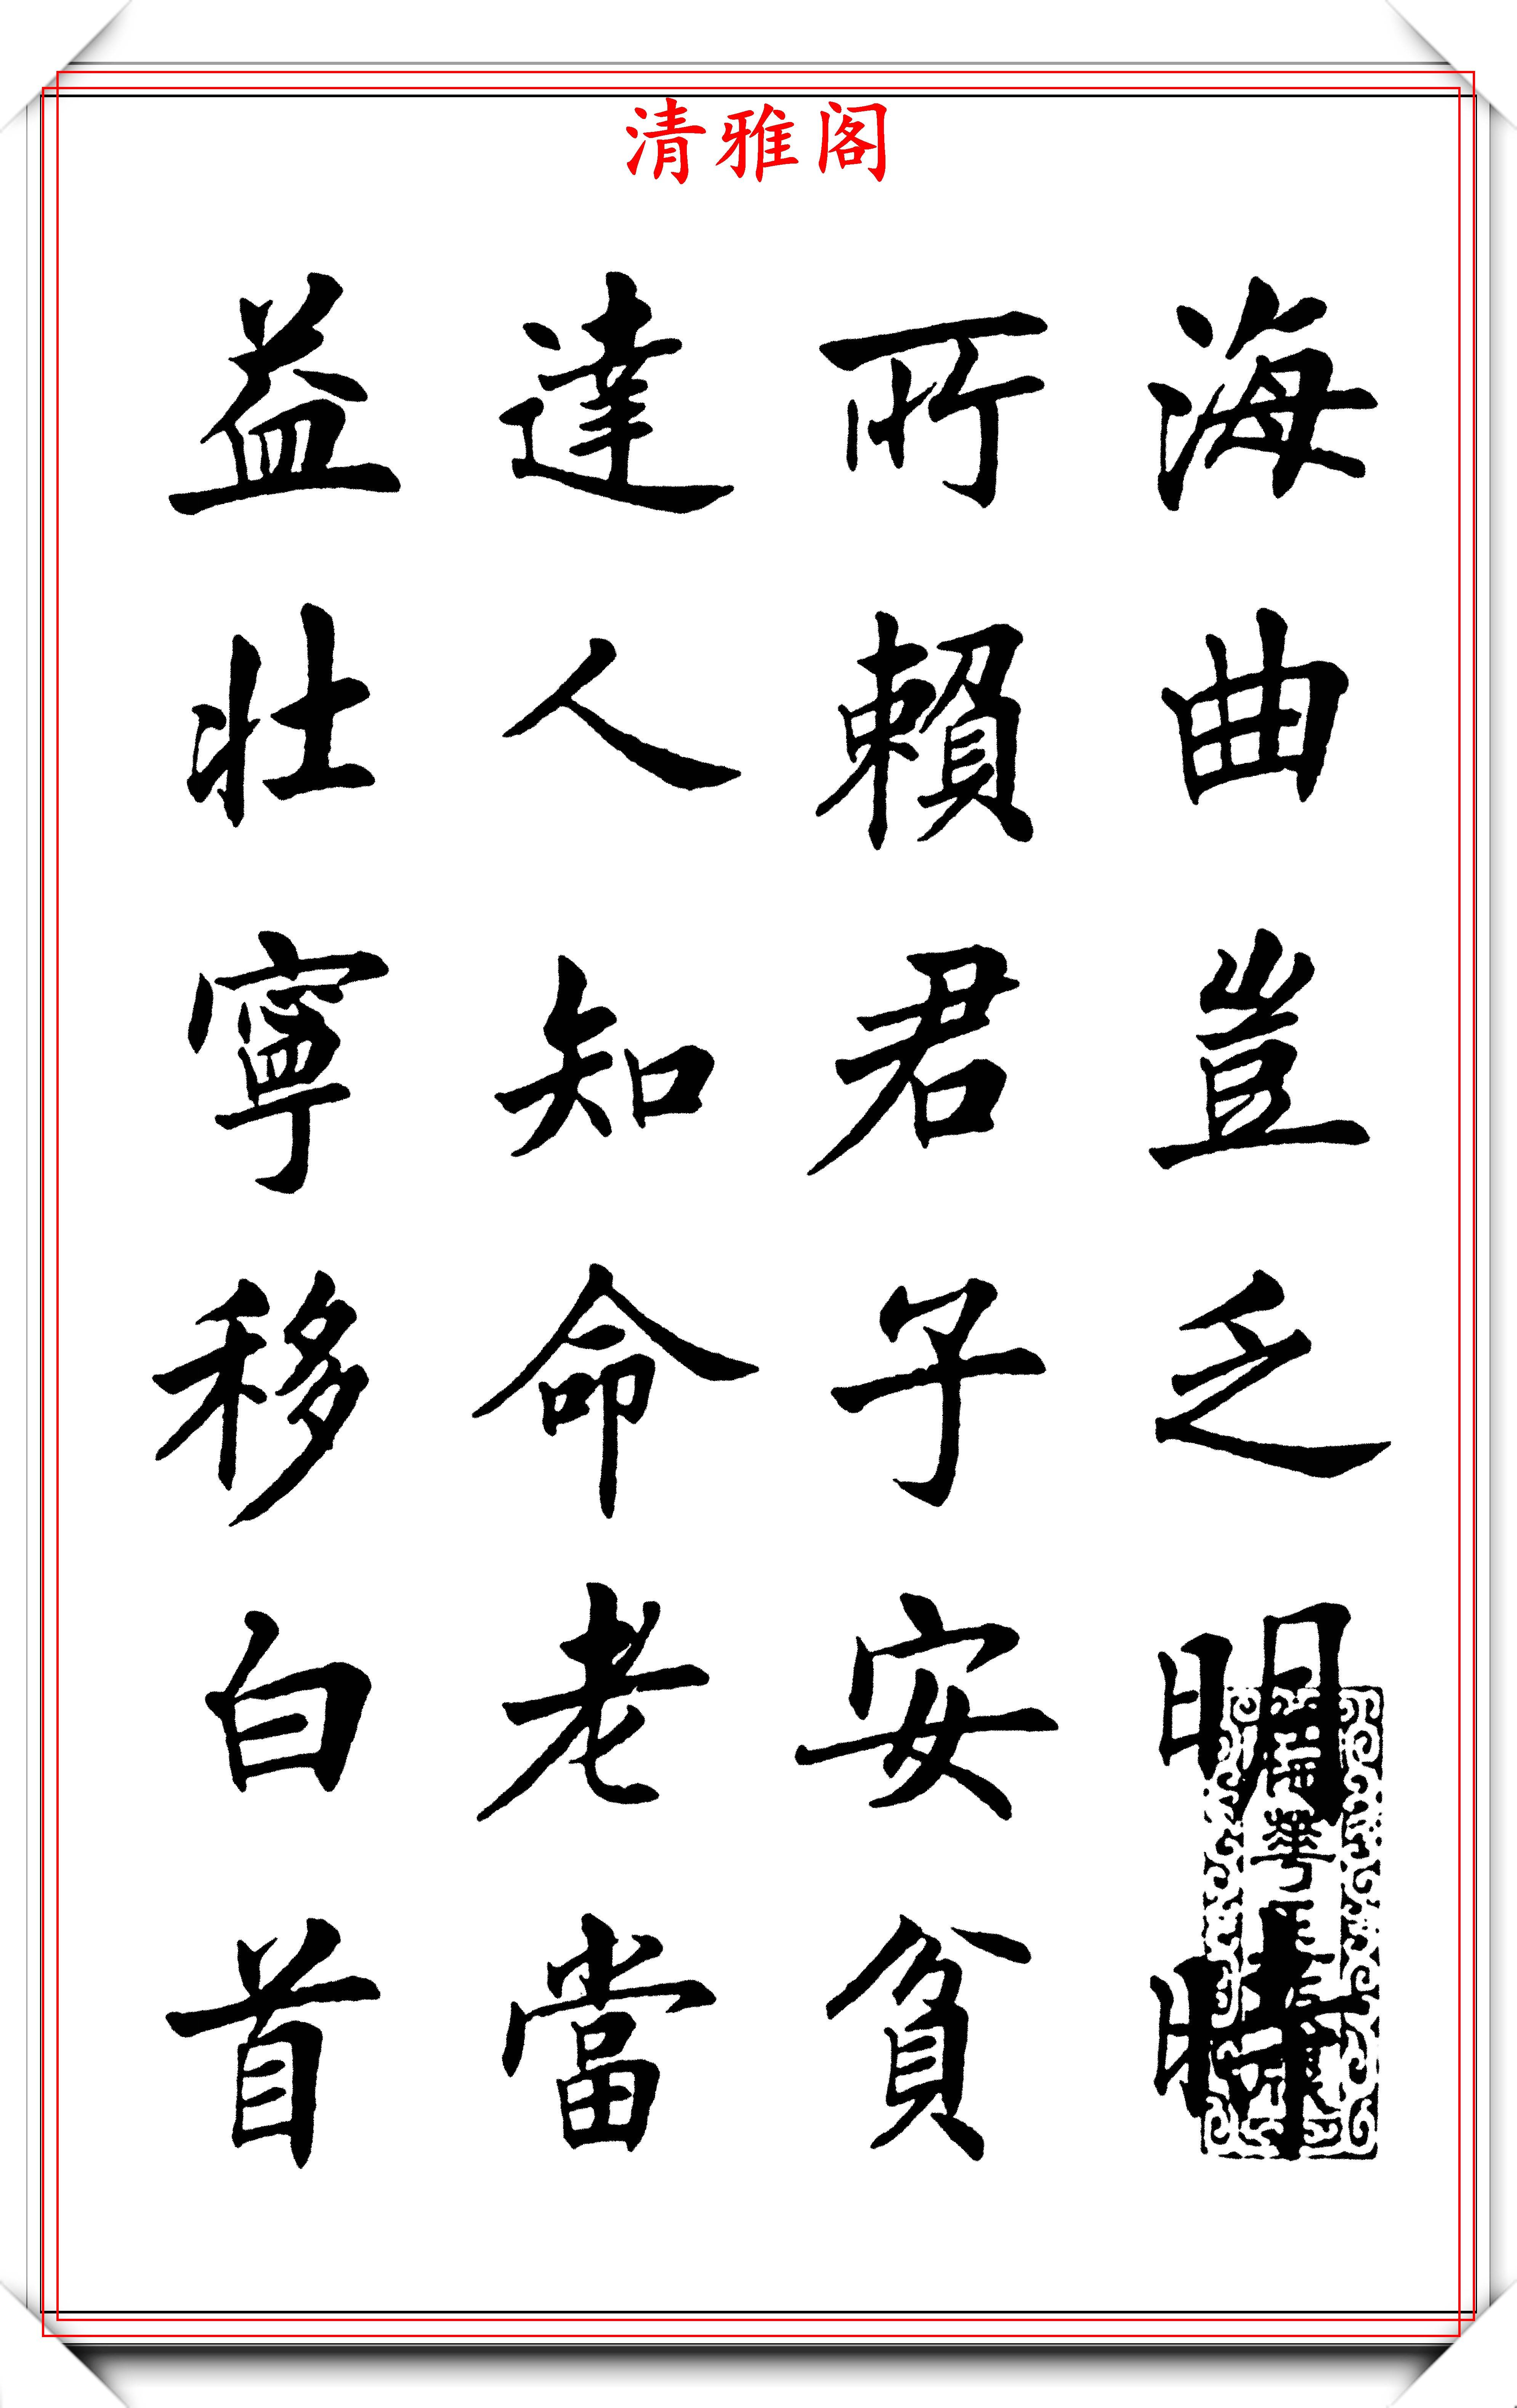 清雅阁
海曲豈乏明時
所賴君子安貧
達人知命老當
益壯寧移白首